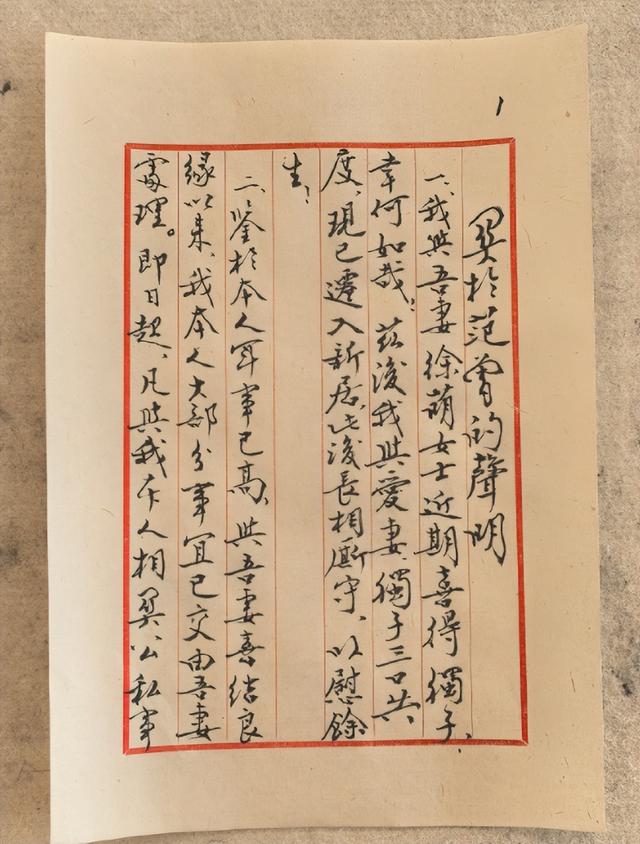 1
関於范曾的聲明
一、我與吾妻徐萌女士近期喜得獨子、
幸何如哉。茲後我與愛妻獨子三口共
度、現已遷入新居、此後長相廝守、以慰餘
生；
二、鑒於本人年事已高、與吾妻喜結良
緣以来、我本人大部分事宜已交由吾妻
處理。即日起、凡與我本人相関公私事